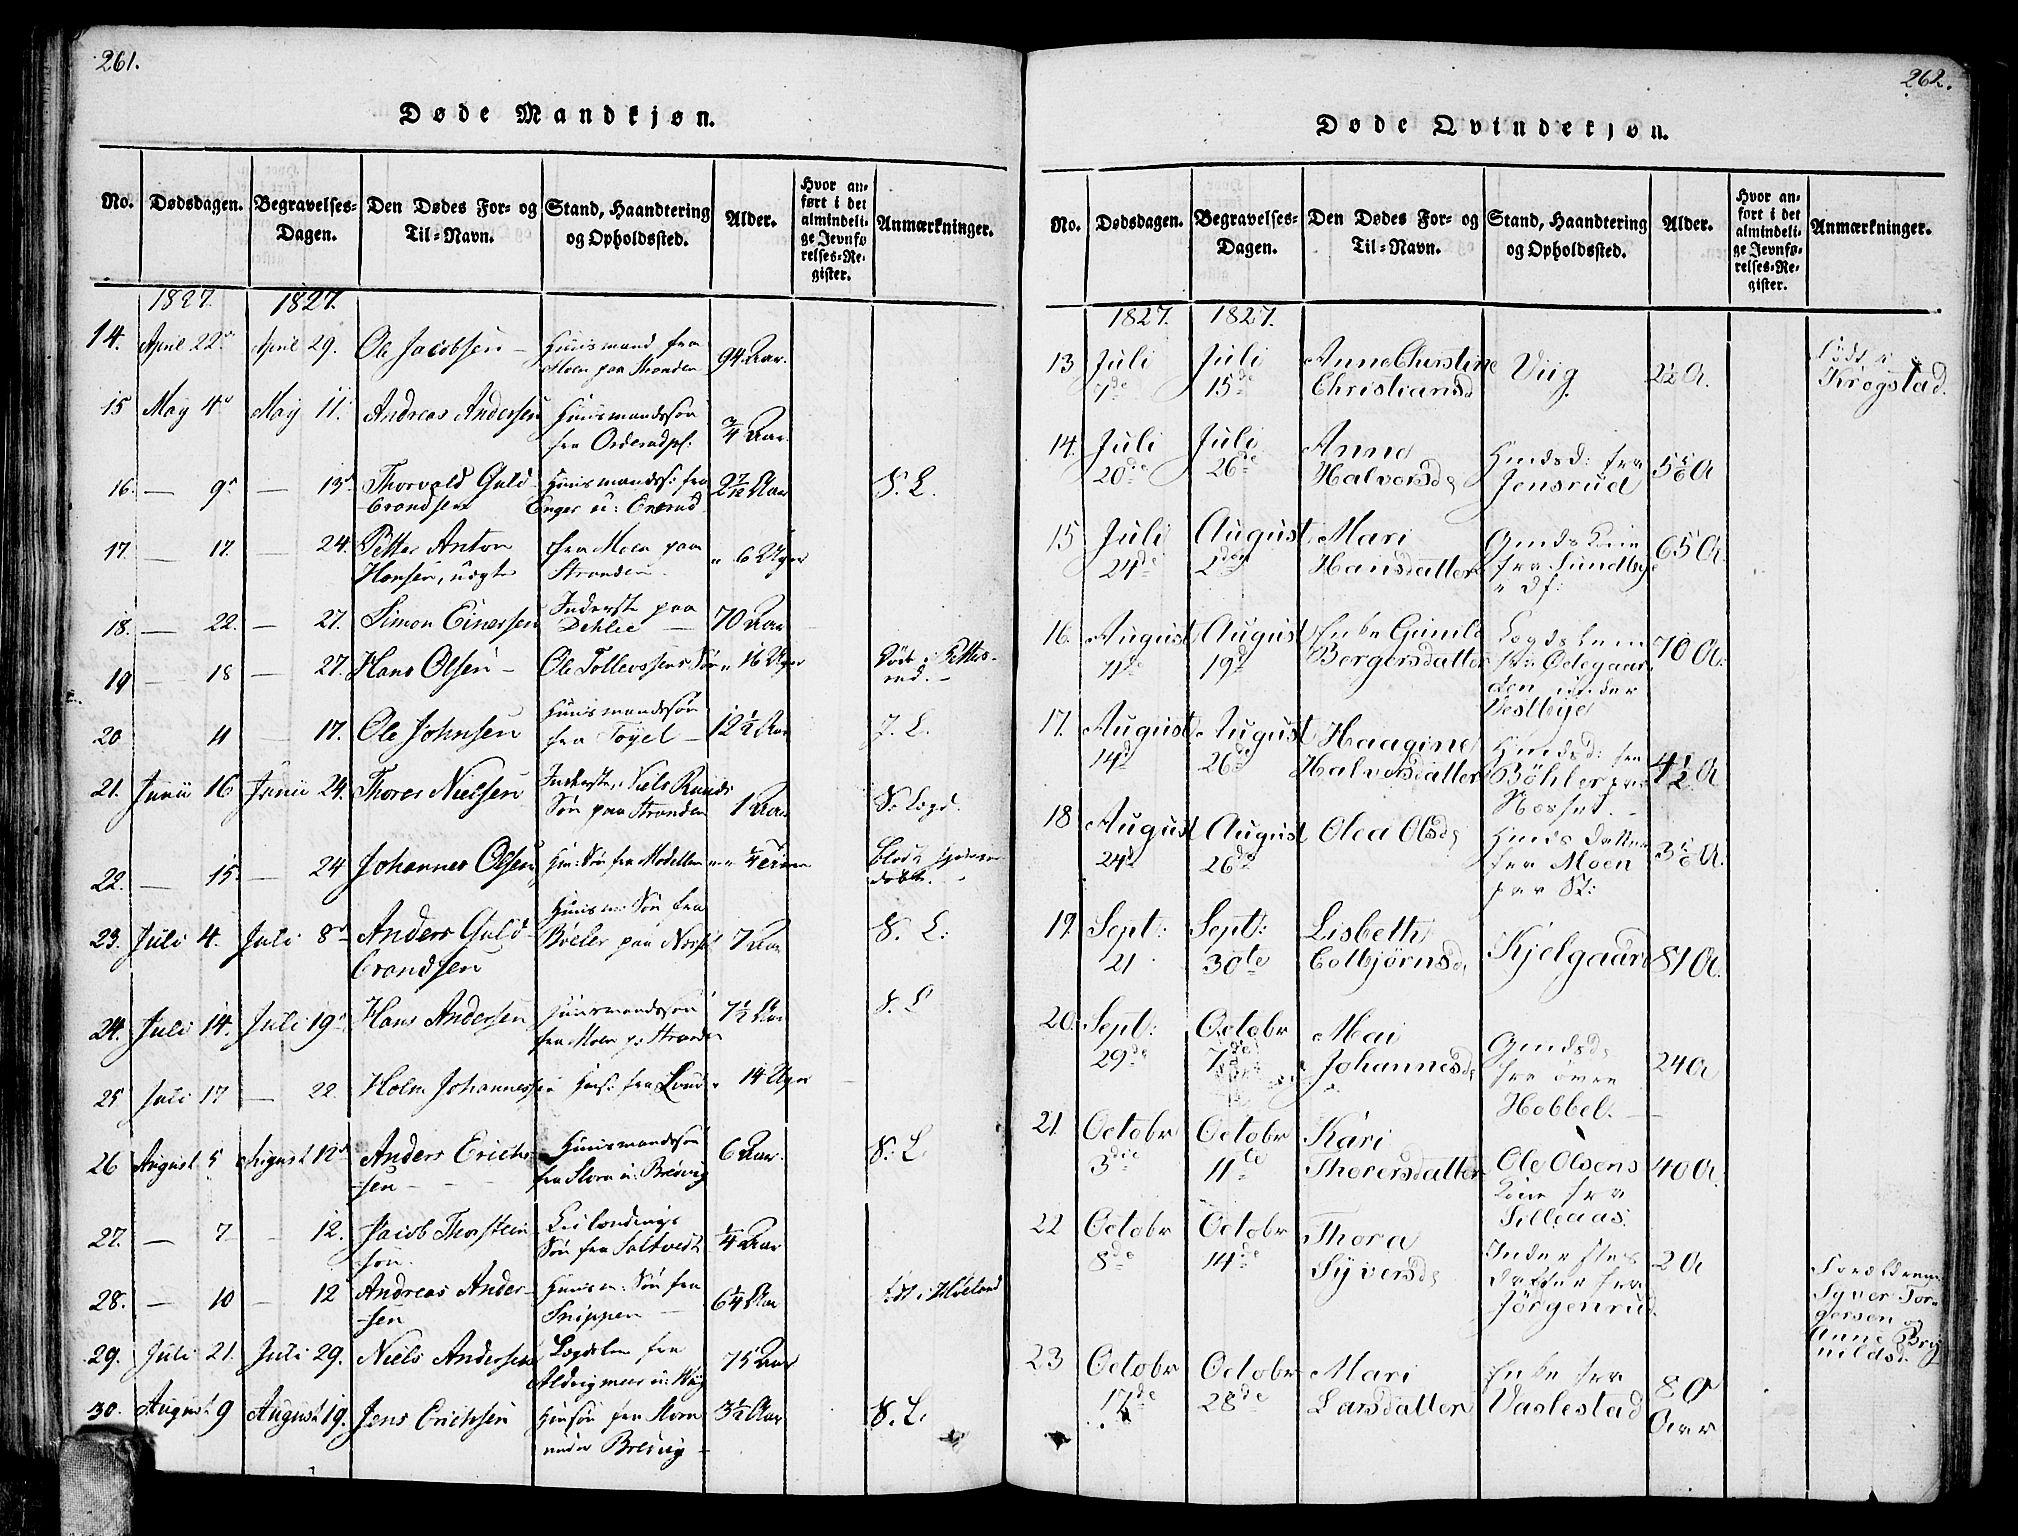 261.
Døde Mandkjøn.
No. Dødsdagen. Begravelses-Dagen. Den Dødes For- og Til-Navn. Stand, Haandtering og Opholdssted. Alder. Hvor anført i det almindelige Jevnførelses-Register. Anmærkninger.
1827. 1827.
14. April 22 April 29. Ole Jacobsen Huusmand fra Moen paa Stranden 94 Aar.
15 May 4 May 11. Andreas Andersen Huusmandssøn fra 3/4 Aar.
16. — 9 — 13 Thorvald Guldbrandsen Huusmandss: fra Enger u: 2 7/12 Aar S. L.
17. — 17. — 24. Petter Anton Hansen, uægte fra Moen paa Stranden. " 6 Uger
18. — 22. — 27. Simon Einersen Inderst paa Dehlie 70 Aar
19 — 18 27. Hans Olsen Ole Tollevssens Søn " 16 Uger
20 11 17. Ole Johnsen Huusmandssøn fra Toyel 12 1/2 Aar J. L.
21. Junii 16 Junii 24. Thores Nielsen Inderste, Niels Søn paa Stranden 1 Aar
22. — 15 — 24 Johannes Olsen Hm: Søn fra Modellen
23. Juli 4. Juli 8 Anders Guldbrandsen Huusm: Søn fra Bøeler paa 7 Aar S. L:
24. Juli 14. Juli 19 Hans Andersen Huusmandssøn fra Moen p: Stranden 7 1/2 Aar S. L
25 Juli 17 — 22. Holm Johannessen fra Lund " 14 Uger
26 August 5 August 12 Anders Erichsen Huusmandssøn fra Skorn u: Brevig 6 Aar. S. L.
27. — 7 12. Jacob Thorsteinsøn. Søn fra Saltvedt 1/4 Aar
28. — 10 — 12 Andreas Andersen Huusm: Søn fra Snippen 6 1/4 Aar født i Høeland
29. Juli 21. Juli 29. Niels Andersen Lægdslem fra 75 Aar
30. August 9 August 19. Jens Erichsen Hmsøn fra Skorn under Brevig 3 1/2 Aar S. L.
262.
Døde Qvindekjøn.
No. Dødsdagen. Begravelses-Dagen. Den Dødes For- og Til-Navn. Stand, Haandtering og Opholdssted. Alder. Hvor anført i det almindelige Jevnførelses-Register. Anmærkninger.
1827. 1827.
13 Juli 7de Juli 15de Anne Christine Christiansd Viig. 2 1/2 A. Født i Krogstad.
14. Juli 20de Juli 26de Anne Halvorsd. Hmdsd: fra Jensrud 5 A
15 Juli 24de August 2den Mari Hansdatter fra Sundbye 65 A.
16. August 11de August 19d Enke Gunild Børgersdatter Lægdslem Ødegaarden under Vestbye 70 A.
17. August 14d August 26de Haagine Halvorsdatter Hmdsd: fra Bøhler 4 1/2 A
18 August 24d August 26de Olea Olsd. Hmds datter fra Moen paa St: A.
19. Sept: 21 Sept: 30te Lisbeth Colbjørnsd. Kjelgaard 81 A.
20. Sept: 29de Octobr 7de Mai Johannesd. fra øvre Hobbel. 24 A
21 Octobr 3die Octobr 11te Kari Thorersdatter Ole Olsens Kone fra Sillenaas. 40 A.
22 Octobr 8de Octobr 14de Thora Syversd. Inderstes datter fra Jørgenrud 2 A Forældrene Syver Torgersen og Anne
23 Octobr 17de Octobr 28de Mari Larsdatter Enke fra Vaslestad 80 Aar